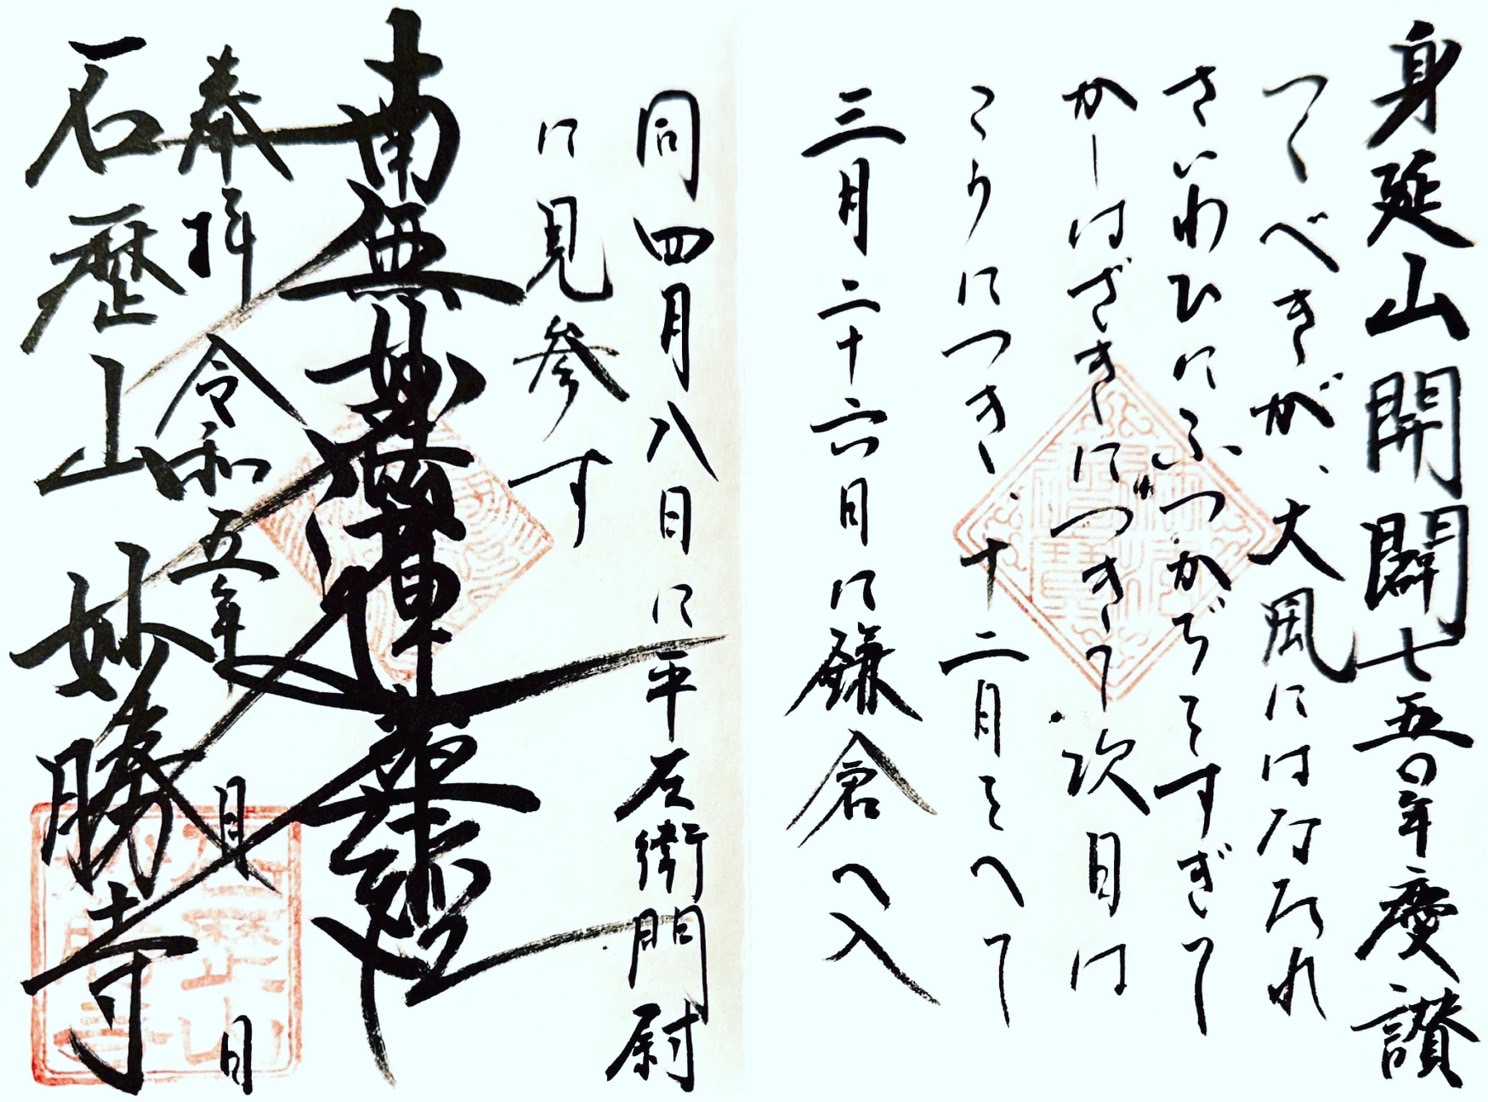 身延山開闢七五〇年慶讃
つくべきが、大風にはなたれ
さいわひにふつかぢをすぎて
かしはざきにつきて次日は
こうにつき・十二日をへて
三月二十六日に鎌倉へ入
同四月八日に平左衛門尉
に見参す
南無妙法蓮華経
奉拝 令和五年 月 日
石歴山 妙勝寺